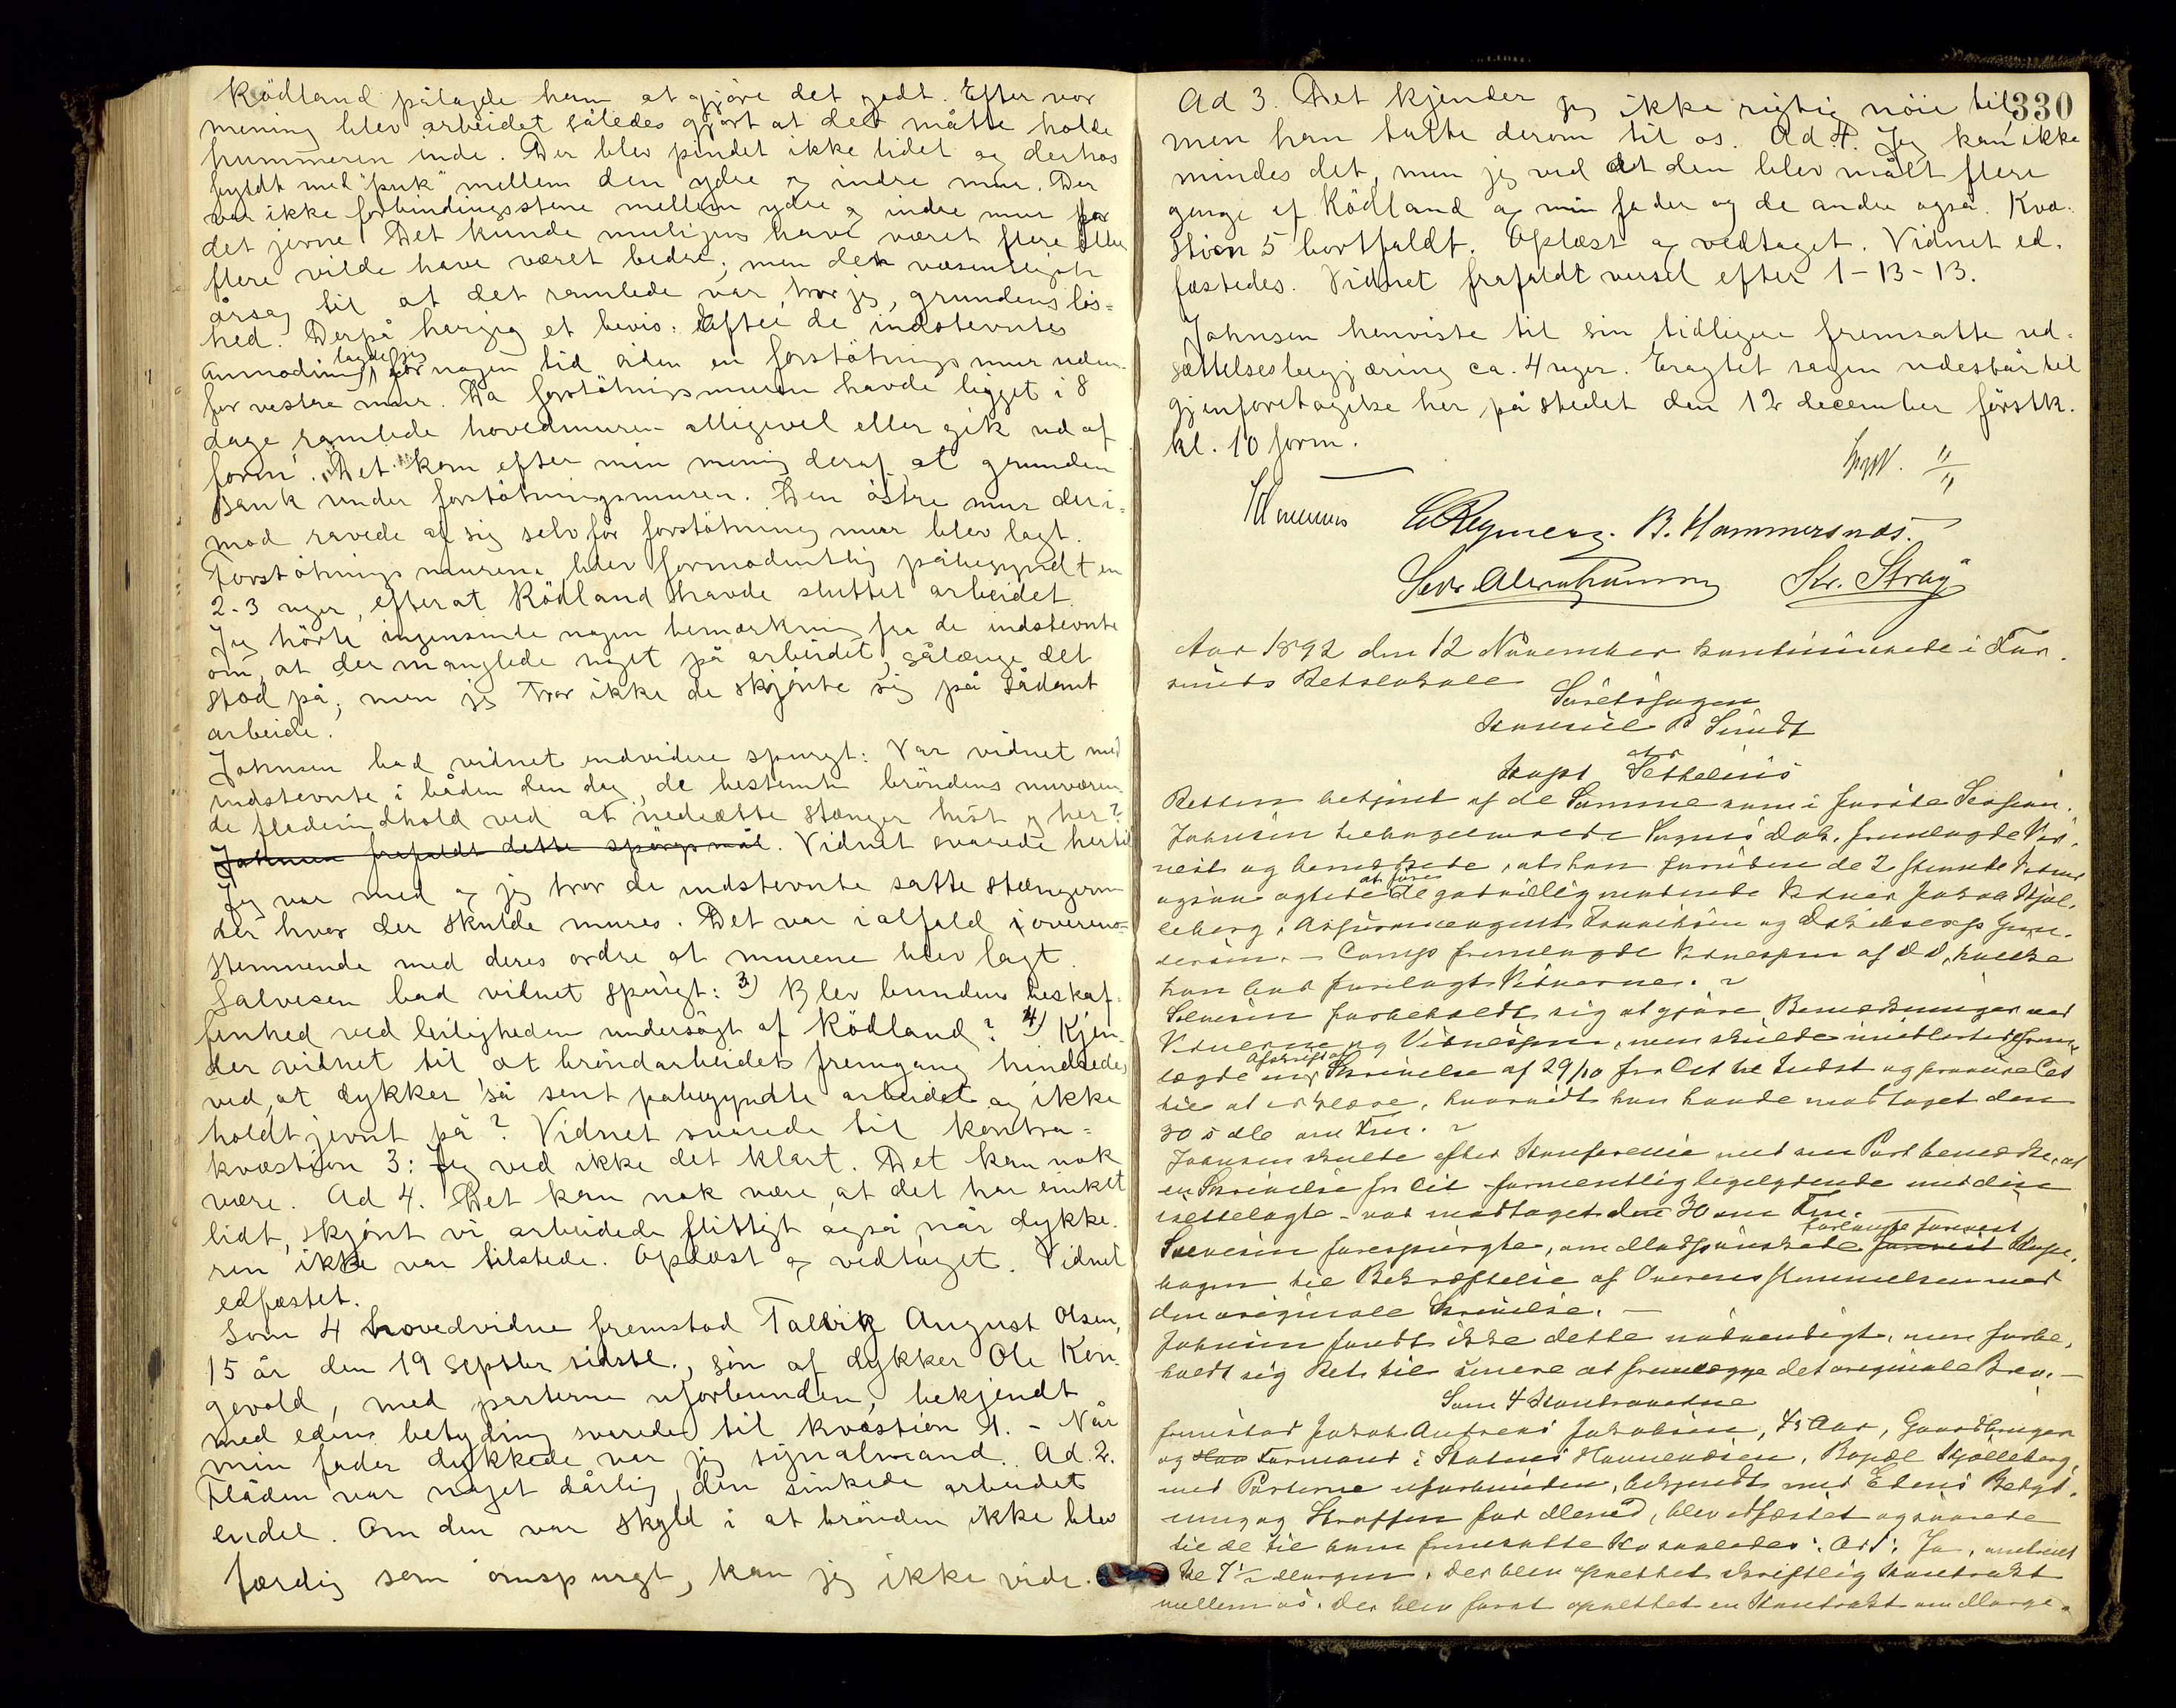 Ködland pålagde ham at gjöre det godt. Efter vor
mening blev arbeidet således gjort at det måtte holde
hummeren inde. Der blev pindet ikke lidet og derhos
fyldt med "puk" mellem den ydre og indre mur. Der
var ikke forbindingsstene mellem ydre og indre mur på
det jevne. Det kunde muligens have været flere eller
flere vilde have været bedre; men den væsentligste
årsag til at det ramlede var, tror jeg, grundens lös-
hed. Derpå har jeg et bevis: Efter de indstevntes
anmodning lagde jeg for nogen tid siden en forstötningsmur uden-
for vestre mur. Da forstötningsmuren havde ligget i 8
dage ramlede hovedmuren alligevel eller gik ud af
form. Det kom efter min mening deraf, at grunden
sank under forstötningsmuren. Den östre mur deri-
mod ravede af sig selv för forstötningsmur blev lagt.
Forstötningsmurene blev formodentlig påbegyndt en
2-3 uger, efterat Ködland havde sluttet arbeidet.
Jeg hörte ingensinde nogen bemærkning fra de indstevnte
om, at der manglede noget på arbeidet, sålænge det
stod på, men jeg tror ikke de skjönte sig på sådant
arbeide.
Johnsen bad vidnet endvidere spurgt: Var vidnet med
indstevnte i båden den dag, de bestemte bröndens nuværen-
de fladeindhold ved at nedsætte stænger hist og her?
Johnsen frafaldt dette spörgsmål. Vidnet svarede hertil
Jeg var med og jeg tror de indstevnte satte stængerne
der hvor der skulde mures. Det var ialfald i overens-
stemmende med deres ordre at murene blev lagt.
Salvesen bad vidnet spurgt: 3) Blev bundens beskaf-
fenhed ved leiligheden undersögt af Ködland? 4) Kjen-
der vidnet til at bröndarbeidets fremgang hindredes
ved, at dykker så sent påbegyndte arbeidet og ikke
holdt jevnt på? Vidnet svarede til kontra-
kvæstion 3: Jeg ved ikke det klart. Det kan nok
være. Ad 4. Det kan nok være, at det har sinket
lidt, skjönt vi arbeidede flittigt også, når dykke-
ren ikke var tilstede. Oplæst og vedtaget. Vidnet
edfæstet.
Som 4 hovedvidne fremstod Talvig August Olsen,
15 år den 19 septbr sidstl., sön af dykker Ole Kon-
gevold, med parterne uforbunden, bekjendt
med edens betydning svarede til kvæstion 1. - Når
min fader dykkede var jeg signalmand. Ad 2.
Flåden var noget dårlig, den sinkede arbeidet
endel. Om den var skyld i at brönden ikke blev
færdig som omspurgt, kan jeg ikke vide.
330
Ad 3. Det kjender jeg ikke rigtig nöie til,
men han talte derom til os. Ad 4. Jeg kan ikke
mindes det, men jeg ved at den blev målt flere
gange af Ködland og min fader og de andre også. Kvæ-
stion 5 bortfaldt. Oplæst og vedtaget. Vidnet ed-
fæstedes. Vidnet frafaldt varsel efter 1-13-13.
Johnsen henviste til sin tidligere fremsatte ud-
sættelsesbegjæring ca. 4 uger. Eragtet sagen udestår til
gjenforetagelse her på stedet den 12 december förstk.
kl. 10 form.
B. Hammersnäs.
Sedr Abrahamson Kr. Stray
Aar 1892 den 12 November kontinuerede i Far-
sunds Retslokale
Söretssagen
Samuel B Sundt
ctr
Kapt
Retten betjent af de Samme som i forste Session.
Johnsen tilbageleverede Sagens Dok. fremlagde
og bemærkede, at han foruden de 2 stevnte Vidner
ogsaa agtede at före de godvillig mødende Vidner Jakob Kjøl-
leberg,
Comp fremlagde Vidnespm af DD, hvilke
han bad forelagt Vidnerne.
Salvesen forbeholdt sig at gjøre Bemærkninger ved
Vidnerne og Vidnespm, men skulde imidlertid frem-
lægge Afskrift af Skrivelse af 29/10 fra Cit til Indst og provocere Cit
til at erklære, hvorvidt han havde modtaget den
30 s M om Fm.
Johnsen skulde efter Konference med sin Part bemærke, at
en Skrivelse fra Cit formentlig ligelydende med den
irettelagte - var modtaget den 30 om Fm. -
Salvesen forespurgte, om Modparten forlangte forevist Kopi-
bogen til Bekræftelse af Overensstemmelsen med
den originale Skrivelse. -
Johnsen fandt ikke dette nødvendigt, men forbe-
holdt sig Ret til senere at fremlægge det originale Brev. -
Som 4 Kontravidne
fremstod Jakob Andreas Jakobsen, Aar, Gaardbruger
og Formand i Statens Havnevæsen, Bopæl Kjølleberg,
med Parterne uforbunden, bekjendt med Edens Betyd-
ning og Straffen for Mened, blev edfæstet og svarede
til de til ham fremsatte Ad 1. Ja, omtrent
Kl 7½ Morgen. Der blev oprettet skriftlig Kontrakt
mellem os. Der blev først oprettet en Kontrakt om Morge-